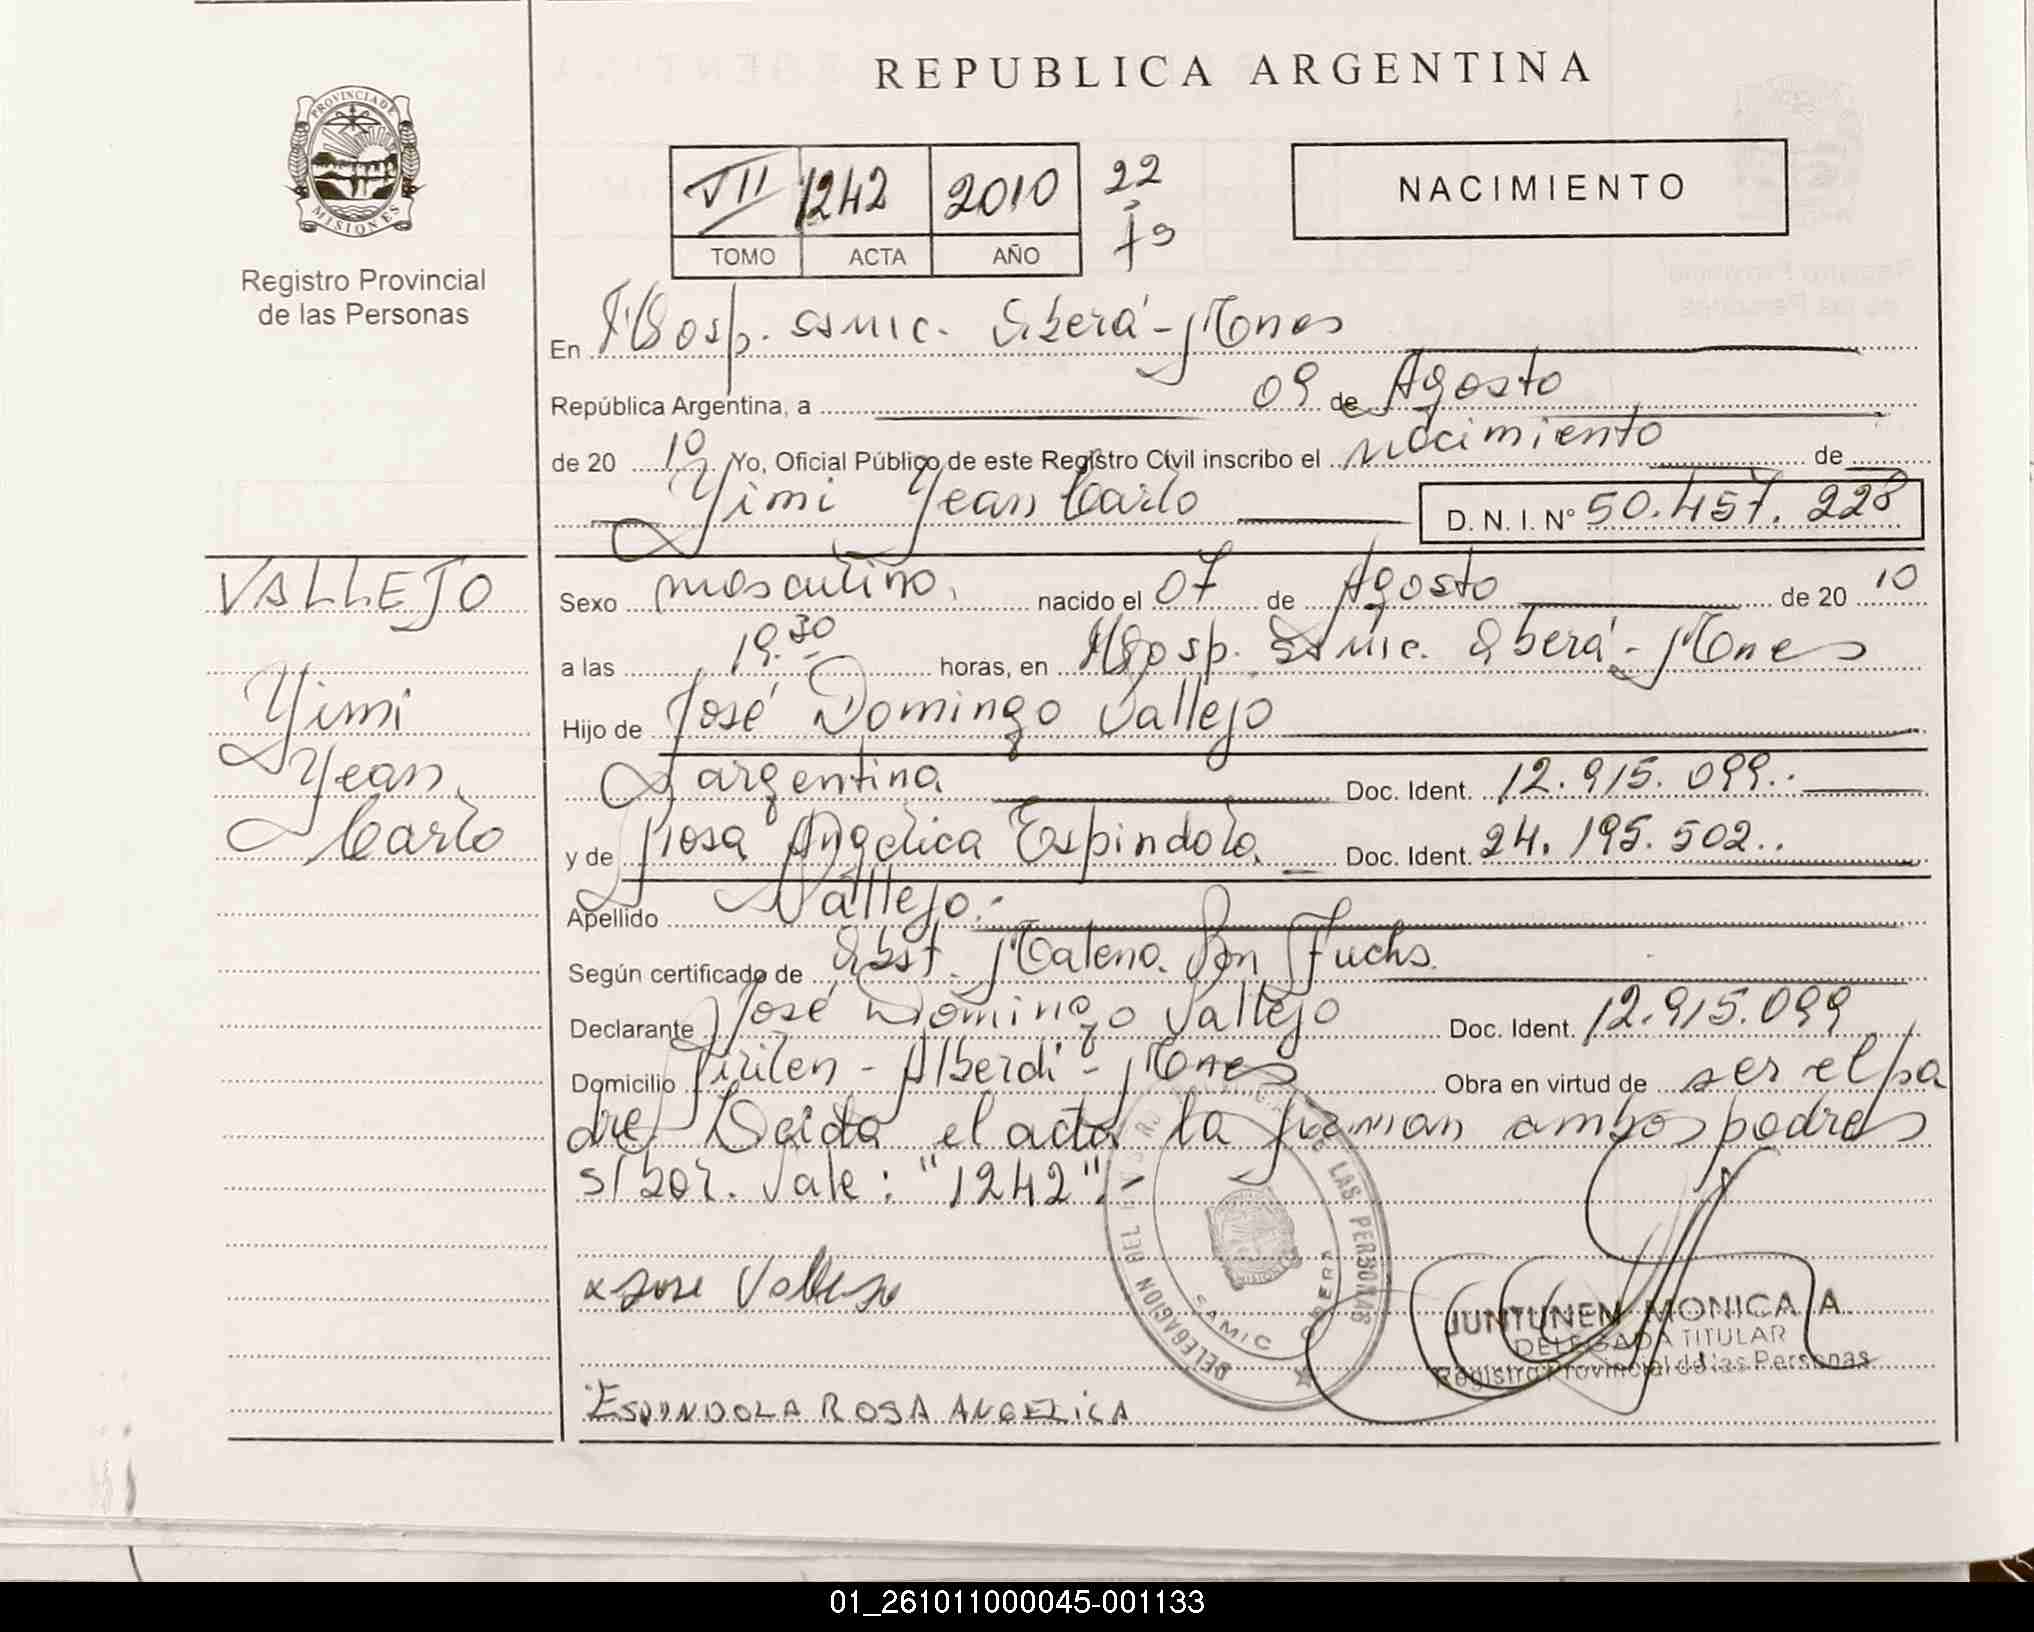 REPUBLICA ARGENTINA
PROVINCIA DE MISIONES
Registro Provincial
de las Personas
VII 1242 2010 22
TOMO ACTA AÑO
NACIMIENTO
En Hosp. SAMIC. Oberá - Mnes
República Argentina, a 09 de Agosto
de 20 10 Yo, Oficial Público de este Registro Civil inscribo el nacimiento de
Yimi Yean Carlo D. N. I. N° 50.457.228
VALLEJO
Yimi
Yean
Carlo
Sexo masculino. nacido el 07 de Agosto de 20 10
a las 19.30 horas, en Hosp. Samic. Oberá - Mnes
Hijo de José Domingo Vallejo
argentina Doc. Ident. 12.915.099..
y de Rosa Angélica Espindola. Doc. Ident. 24.195.502..
Apellido Vallejo.-
Según certificado de Obst. Fuchs.
Declarante José Domingo Vallejo Doc. Ident. 12.915.099
Domicilio - Alberdi - Mnes Obra en virtud de ser el pa
dre. Leída el acta la firman ambos padres
s/bor. Vale: "1242".-
x Jose Vallejo
DELEGACION DE LAS PERSONAS
SAMIC OBERA
JUNTUNEN MONICA A.
DELEGADA TITULAR
Registro Provincial de las Personas
ESPINDOLA ROSA ANGELICA
01_261011000045-001133